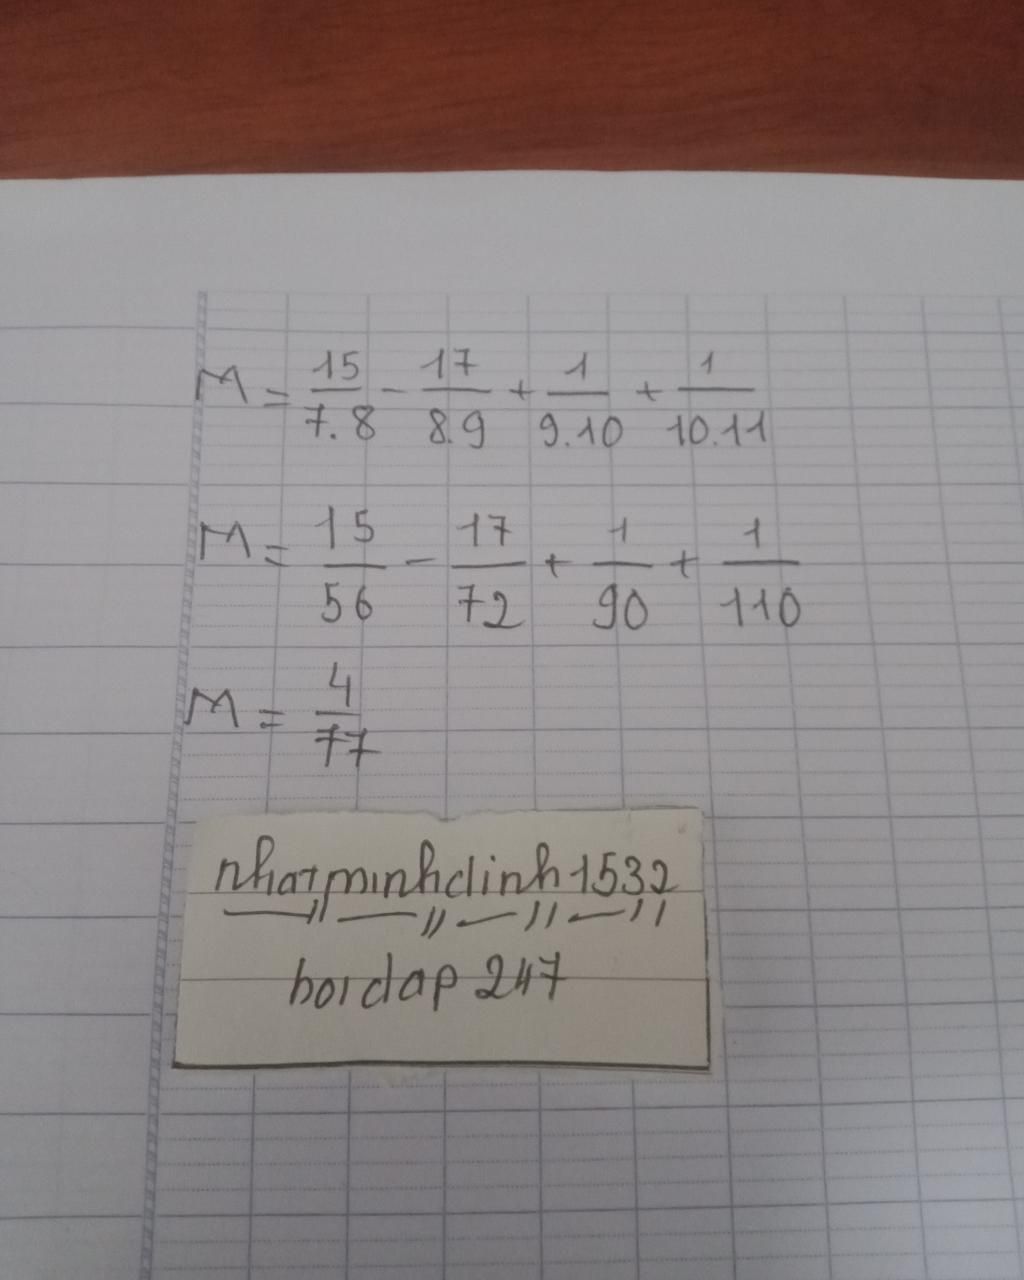 M = 15/7.8 - 17/8.9 + 1/9.10 + 1/10.11
M = 15/56 - 17/72 + 1/90 + 1/110
M = 4/77
nhatminhdinh1532
hoidap247